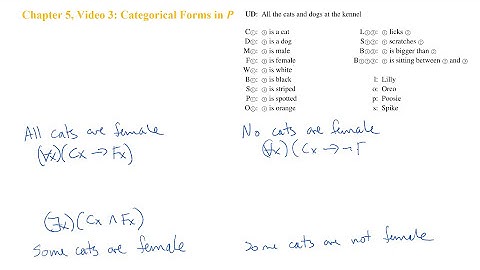 Chapter 5, Video 3: Categorical Forms in P
UD: All the cats and dogs at the kennel
C①: ① is a cat
D①: ① is a dog
M①: ① is male
F①: ① is female
W①: ① is white
B①: ① is black
S①: ① is striped
P①: ① is spotted
O①: ① is orange
L①②: ① licks ②
S①②: ① scratches ②
B①②: ① is bigger than ②
B①②③: ① is sitting between ② and ③
l: Lilly
o: Oreo
p: Poosie
s: Spike
All cats are female
(∀x)(Cx → Fx)
No cats are female
(∀x)(Cx → ¬F
(∃x)(Cx ∧ Fx)
Some cats are female
Some cats are not female